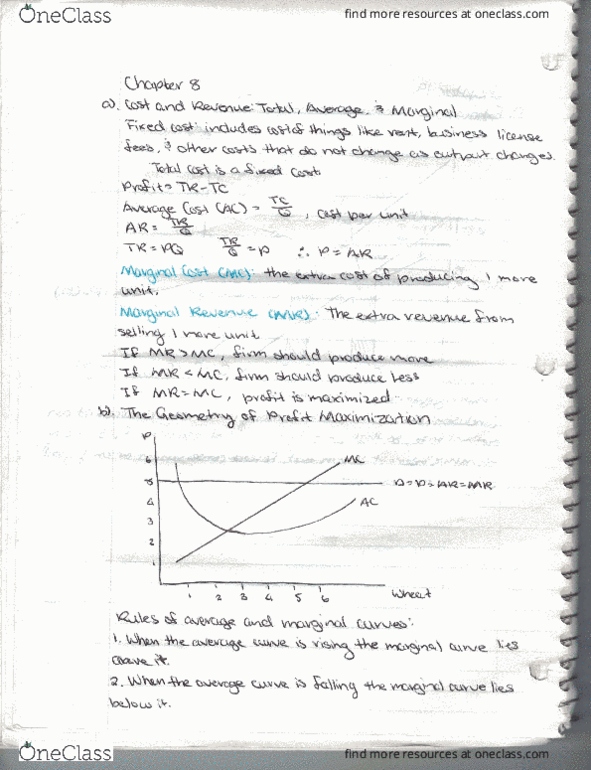 OneClass
find more resources at oneclass.com
Chapter 8
a). Cost and Revenue: Total, Average, & Marginal
Fixed cost: includes cost of things like rent, business license
fees, & other costs that do not change as output changes.
Total cost is a fixed cost
Profit = TR-TC
Average Cost (AC) = TC/Q, cost per unit
AR = TR/Q
TR = PQ TR/Q = P ∴ P = AR
Marginal Cost (MC): the extra cost of producing 1 more
unit.
Marginal Revenue (MR): The extra revenue from
selling 1 more unit
If MR > MC, firm should produce more
If MR < MC, firm should produce less
If MR = MC, profit is maximized
b). The Geometry of Profit Maximization
P
6
5
4
3
2
1
MC
D=P=AR=MR
AC
1 2 3 4 5 6 wheat
Rules of average and marginal curves:
1. When the average curve is rising the marginal curve lies
above it.
2. When the average curve is falling the marginal curve lies
below it.
OneClass
find more resources at oneclass.com